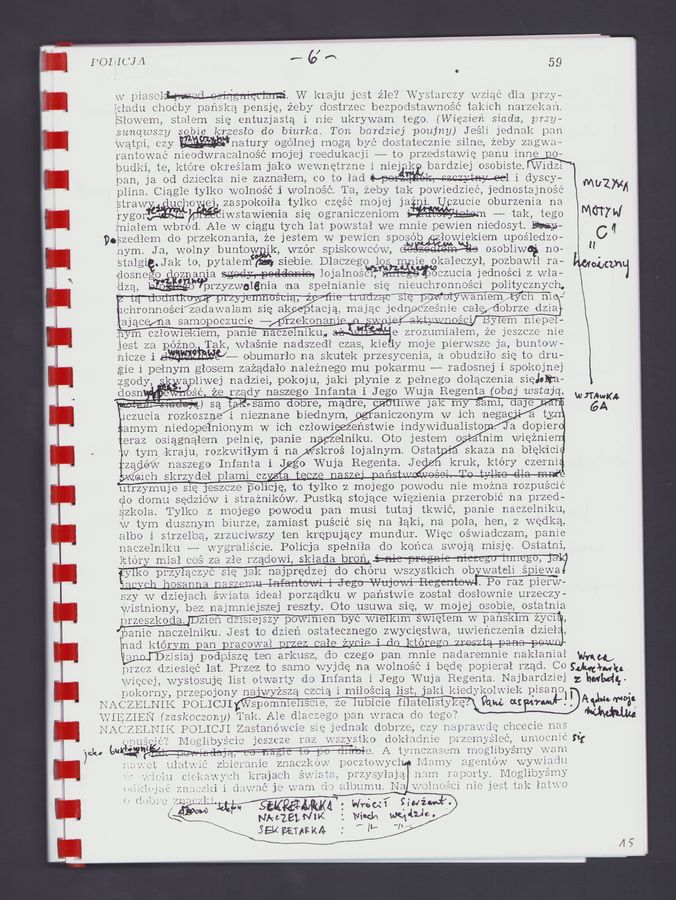 POLICJA
- 6 -
59
w piasek przed osiągnięciami. W kraju jest źle? Wystarczy wziąć dla przy-
kładu choćby pańską pensję, żeby dostrzec bezpodstawność takich narzekań.
Słowem, stałem się entuzjastą i nie ukrywam tego. (Więzień siada, przy-
sunąwszy sobie krzesło do biurka. Ton bardziej poufny) Jeśli jednak pan
wątpi, czy przyczyny natury ogólnej mogą być dostatecznie silne, żeby zagwa-
rantować nieodwracalność mojej reedukacji — to przedstawię panu inne po-
budki, te, które określam jako wewnętrzne i niejako bardziej osobiste. Widzi
pan, ja od dziecka nie zaznałem, co to ład porządek, szczytny cel i dyscy-
plina. Ciągle tylko wolność i wolność. Ta, żeby tak powiedzieć, jednostajność
strawy duchowej zaspokoiła tylko część mojej jaźni. Uczucie oburzenia na
rygor przeciwstawienia się ograniczeniom — tak, tego
miałem wbród. Ale w ciągu tych lat powstał we mnie pewien niedosyt.
Doszedłem do przekonania, że jestem w pewien sposób człowiekiem upośledzo-
nym. Ja, wolny buntownik, wzór spiskowców, osobliwą no-
stalgię. Jak to, pytałem sam siebie. Dlaczego los mnie okaleczył, pozbawił ra-
dosnego doznania zgody, poddania, lojalności, wzruszającego poczucia jedności z wła-
dzą, rozkosznego przyzwolenia na spełnianie się nieuchronności politycznych,
z tą dodatkową przyjemnością, że nie trudząc się powoływaniem tych nie-
uchronności zadawałam się akceptacją, mając jednocześnie całe, dobrze dzia-
łające na samopoczucie — przekonanie o swojej aktywności? Byłem niepeł-
nym człowiekiem, panie naczelniku, zrozumiałem, że jeszcze nie
jest za późno. Tak, właśnie nadszedł czas, kiedy moje pierwsze ja, buntow-
nicze i wywrotowe — obumarło na skutek przesycenia, a obudziło się to dru-
gie i pełnym głosem zażądało należnego mu pokarmu — radosnej i spokojnej
zgody, skwapliwej nadziei, pokoju, jaki płynie z pełnego dołączenia się do ra-
dosną pewność, że rządy naszego Infanta i Jego Wuja Regenta (obaj wstają,
potem siadają) są tak samo dobre, mądre, cnotliwe jak my sami, daje nam
uczucia rozkoszne i nieznane biednym, ograniczonym w ich negacji a tym
samym niedopełnionym w ich człowieczeństwie indywidualistom. Ja dopiero
teraz osiągnąłem pełnię, panie naczelniku. Oto jestem ostatnim więźniem
w tym kraju, rozkwitłym i na wskroś lojalnym. Ostatnia skaza na błękicie
rządów naszego Infanta i Jego Wuja Regenta. Jeden kruk, który czernią
swoich skrzydeł plami czystą tęczę naszej państwowości. To tylko dla mnie
utrzymuje się jeszcze policję, to tylko z mojego powodu nie można rozpuścić
do domu sędziów i strażników. Pustką stojące więzienia przerobić na przed-
szkola. Tylko z mojego powodu pan musi tutaj tkwić, panie naczelniku,
w tym dusznym biurze, zamiast puścić się na łąki, na pola, hen, z wędką,
albo i strzelbą, zrzuciwszy ten krępujący mundur. Więc oświadczam, panie
naczelniku — wygraliście. Policja spełniła do końca swoją misję. Ostatni,
który miał coś za złe rządowi, składa broń, i nie pragnie niczego innego, jak
tylko przyłączyć się jak najprędzej do chóru wszystkich obywateli śpiewa-
jących hosanna naszemu Infantowi i Jego Wujowi Regentowi. Po raz pierw-
szy w dziejach świata ideał porządku w państwie został dosłownie urzeczy-
wistniony, bez najmniejszej reszty. Oto usuwa się, w mojej osobie, ostatnia
przeszkoda. Dzień dzisiejszy powinien być wielkim świętem w pańskim życiu,
panie naczelniku. Jest to dzień ostatecznego zwycięstwa, uwieńczenia dzieła,
nad którym pan pracował przez całe życie i do którego zresztą pana powo-
łano. Dzisiaj podpiszę ten arkusz, do czego pan mnie nadaremnie nakłaniał
przez dziesięć lat. Przez to samo wyjdę na wolność i będę popierał rząd. Co
więcej, wystosuję list otwarty do Infanta i Jego Wuja Regenta. Najbardziej
pokorny, przepojony najwyższą czcią i miłością list, jaki kiedykolwiek pisano.
NACZELNIK POLICJI Wspomnieliście, że lubicie filatelistykę?
WIĘZIEŃ (zaskoczony) Tak. Ale dlaczego pan wraca do tego?
NACZELNIK POLICJI Zastanówcie się jednak dobrze, czy naprawdę chcecie nas
opuścić? Moglibyście jeszcze raz wszystko dokładnie przemyśleć, umocnić się
jako buntownik
Tak powiadają, co nagle to po diable. A tymczasem moglibyśmy wam
nawet ułatwić zbieranie znaczków pocztowych. Mamy agentów wywiadu
w wielu ciekawych krajach świata, przysyłają nam raporty. Moglibyśmy
odklejać znaczki i dawać je wam do albumu. Na wolności nie jest tak łatwo
o dobre znaczki.
MUZYKA
MOTYW
"C"
heroiczny
WSTAWKA
6A
Wraca
Sekretarka
z herbatą.
Pani aspirant!!
A gdzie moja
SEKRETARKA : Wrócił Sierżant.
NACZELNIK : Niech wejdzie.
SEKRETARKA : -"- -"-
15